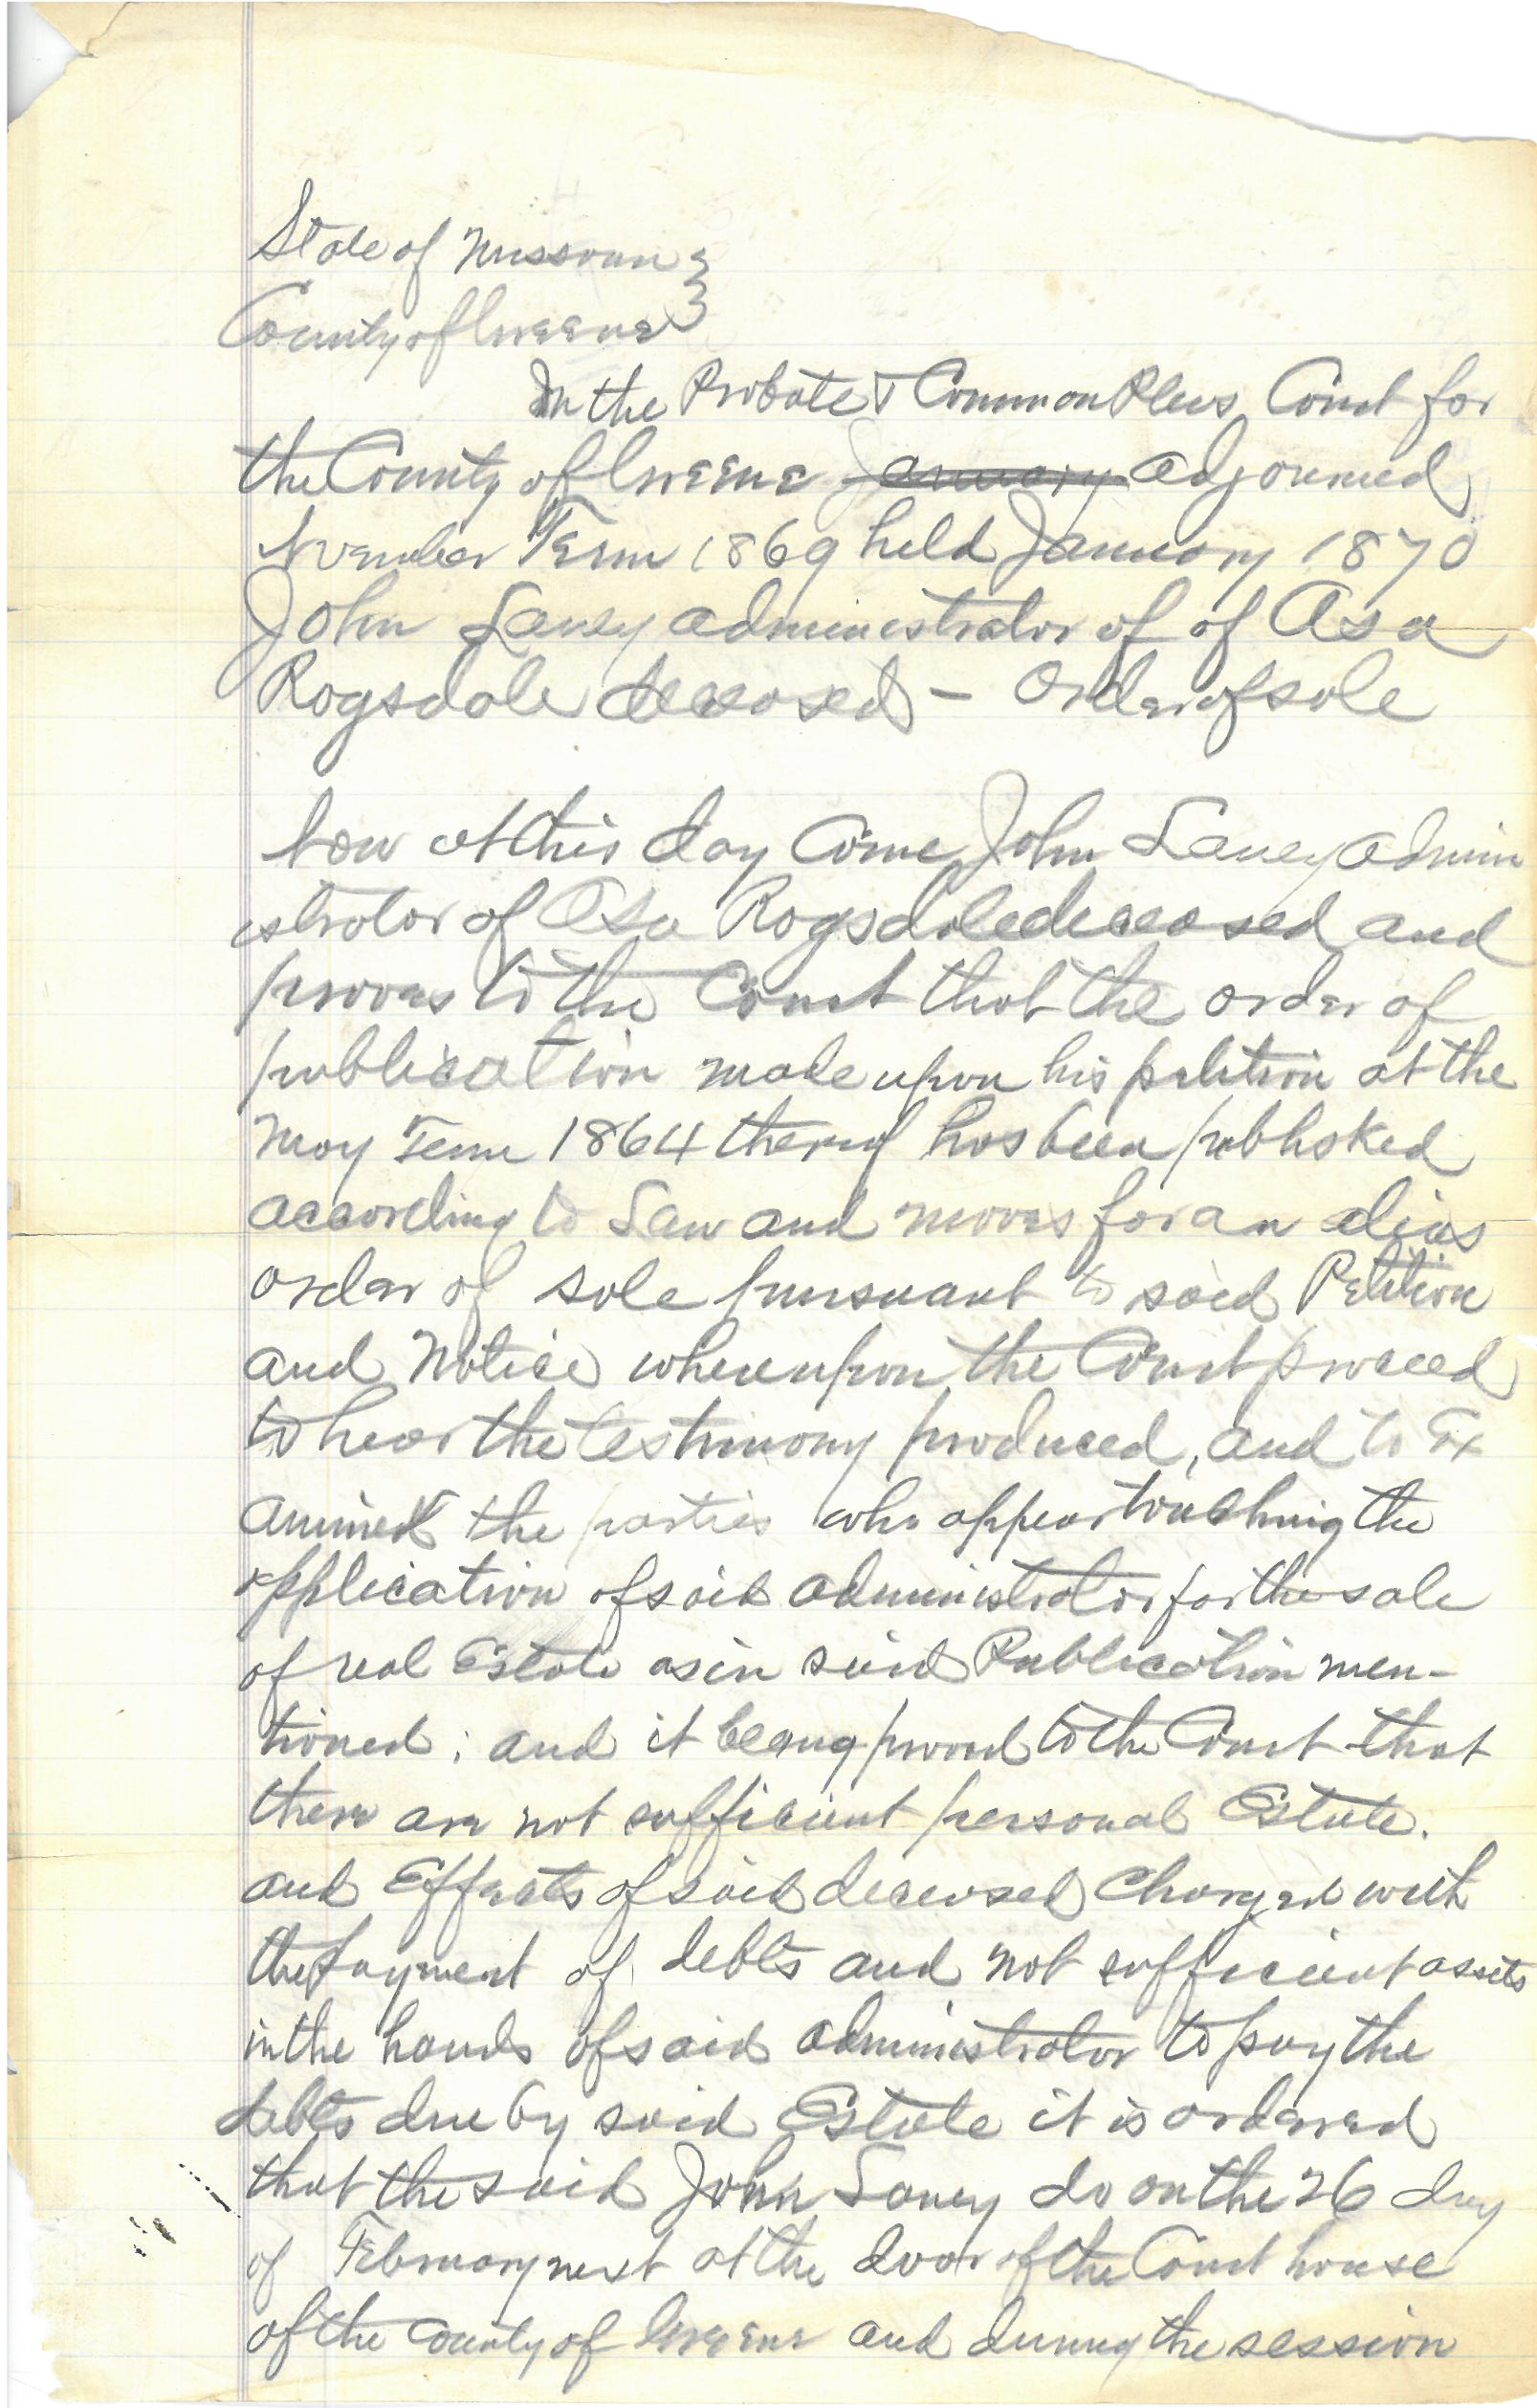 State of Missouri }
County of Greene }
In the Probate & Common Pleas Court for
the County of Greene January adjourned
November Term 1869 held January 1870
John Laney administrator of of Asa
Ragsdale deceased – Order of sale
Now at this day Come John Laney admin
istrator of Asa Ragsdale deceased and
proves to the Court that the order of
publication made upon his petition at the
May Term 1864 thereof has been published
according to Law and moves for an alias
order of sale pursuant to said Petition
and Notice whereupon the Court proceed
to hear the testimony produced, and to Ex
amined the parties who appear touching the
application of said administrator for the sale
of real Estate as in said Publication men-
tioned; and it being proved to the Court that
there are not sufficient personal Estate.
and Effects of said deceased Charged with
the payment of debts and not sufficient assets
in the hands of said administrator to pay the
debts due by said Estate it is ordered
that the said John Laney do on the 26 day
of February next at the door of the Court house
of the County of Greene and during the session